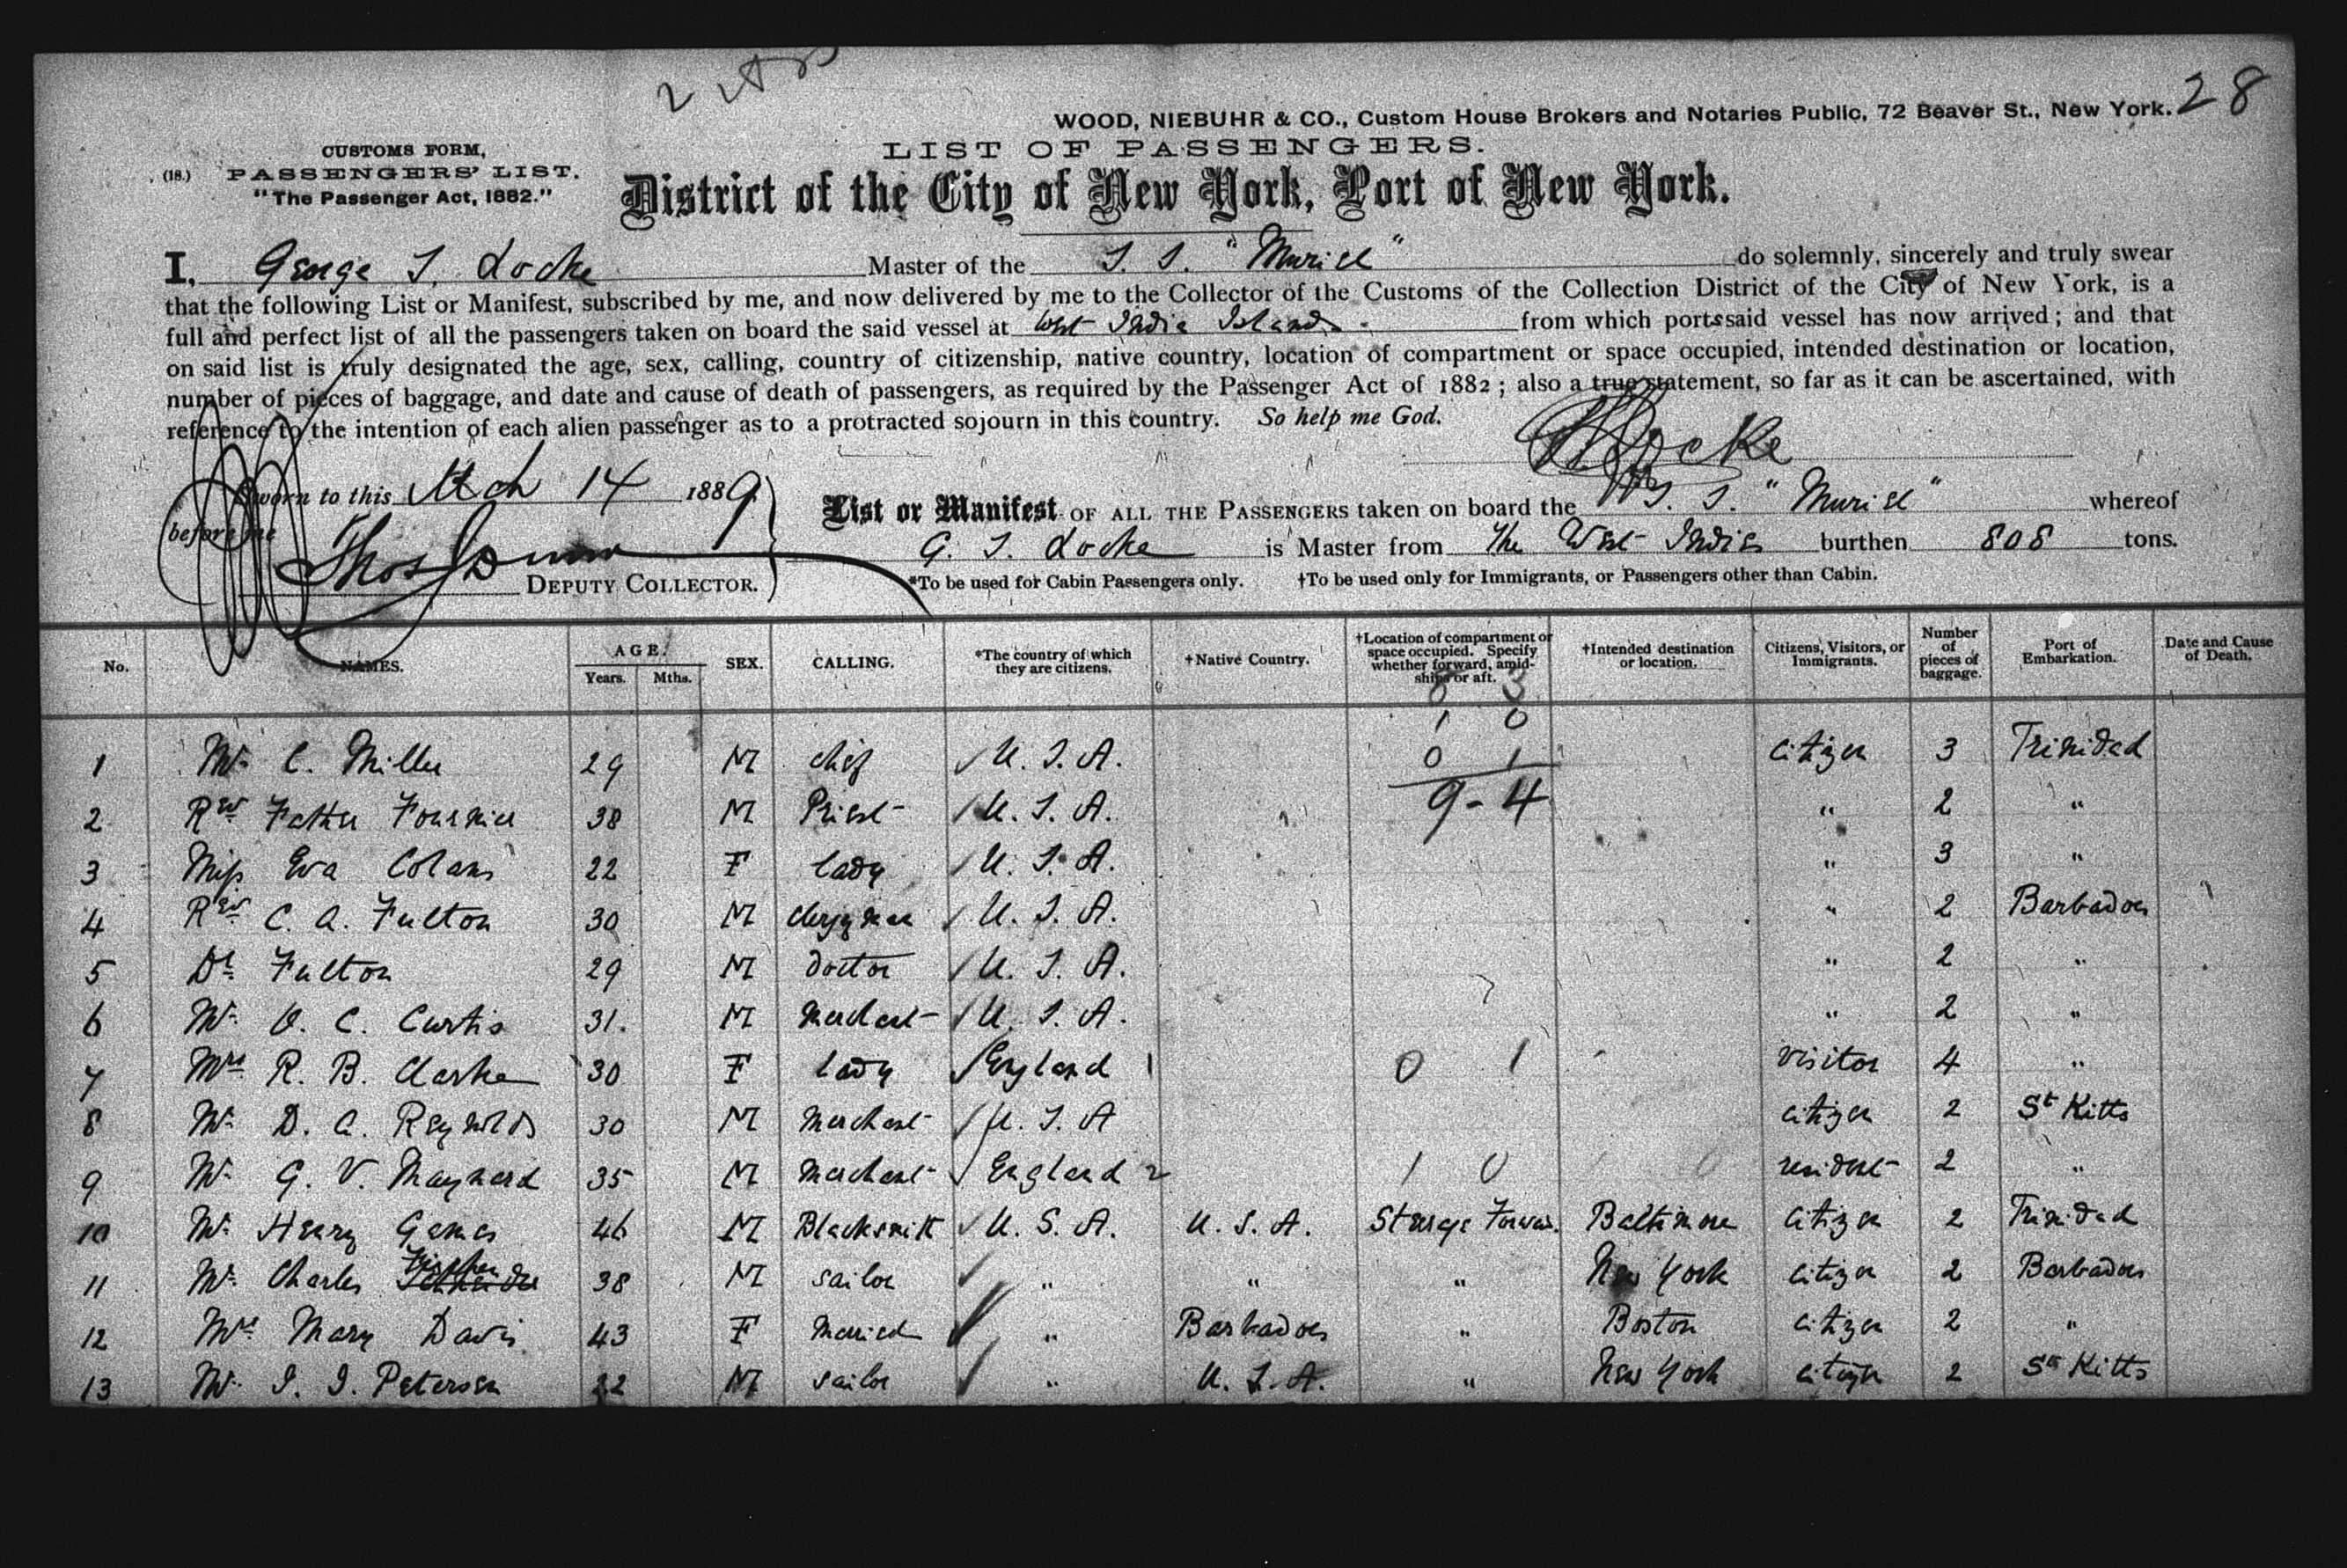 28
WOOD, NIEBUHR & CO., Custom House Brokers and Notaries Public, 72 Beaver St., New York.
CUSTOMS FORM,
(18.) PASSENGERS' LIST.
"The Passenger Act, 1882."
LIST OF PASSENGERS.
District of the City of New York, Port of New York.
I, George S. Locke Master of the S. S. "Muriel" do solemnly, sincerely and truly swear
that the following List or Manifest, subscribed by me, and now delivered by me to the Collector of the Customs of the Collection District of the City of New York, is a
full and perfect list of all the passengers taken on board the said vessel at West India Islands from which ports said vessel has now arrived; and that
on said list is truly designated the age, sex, calling, country of citizenship, native country, location of compartment or space occupied, intended destination or location,
number of pieces of baggage, and date and cause of death of passengers, as required by the Passenger Act of 1882; also a true statement, so far as it can be ascertained, with
reference to the intention of each alien passenger as to a protracted sojourn in this country. So help me God.
Locke
Sworn to this Mch 14 1889
before me
Thos DEPUTY COLLECTOR.
List or Manifest OF ALL THE PASSENGERS taken on board the S. S. "Muriel" whereof
G. S. Locke is Master from The West Indies burthen 808 tons.
*To be used for Cabin Passengers only. †To be used only for Immigrants, or Passengers other than Cabin.
No. NAMES. AGE. Years. Mths. SEX. CALLING. *The country of which they are citizens. †Native Country. †Location of compartment or space occupied. Specify whether forward, amidships or aft. †Intended destination or location. Citizens, Visitors, or Immigrants. Number of pieces of baggage. Port of Embarkation. Date and Cause of Death.
1 0
1 Mr. C. Miller 29 M chief U. S. A. 0 1 citizen 3 Trinidad
2 Rev Father Fournier 38 M Priest U. S. A. 9-4 " 2 "
3 Miss Eva Colans 22 F lady U. S. A. " 3 "
4 Rev C. A. Fulton 30 M clergyman U. S. A. " 2 Barbados
5 Dr. Fulton 29 M doctor U. S. A. " 2 "
6 Mr. O. C. Curtis 31. M merchant U. S. A. " 2 "
7 Mrs R. B. Clarke 30 F lady England 1 0 1 visitor 4 "
8 Mr. D. A. Reynolds 30 M merchant U. S. A citizen 2 St Kitts
9 Mr. G. V. Maynard 35 M merchant England 2 1 0 resident 2 "
10 Mr. Henry Games 46 M Blacksmith U. S. A. U. S. A. Steerage Forwar. Baltimore citizen 2 Trinidad
11 Mr. Charles Fischer 38 M sailor " " " New York citizen 2 Barbados
12 Mrs Mary Davis 43 F married " Barbados " Boston citizen 2 "
13 Mr. I. I. Petersen 22 M sailor " U. S. A. " New York citizen 2 St Kitts